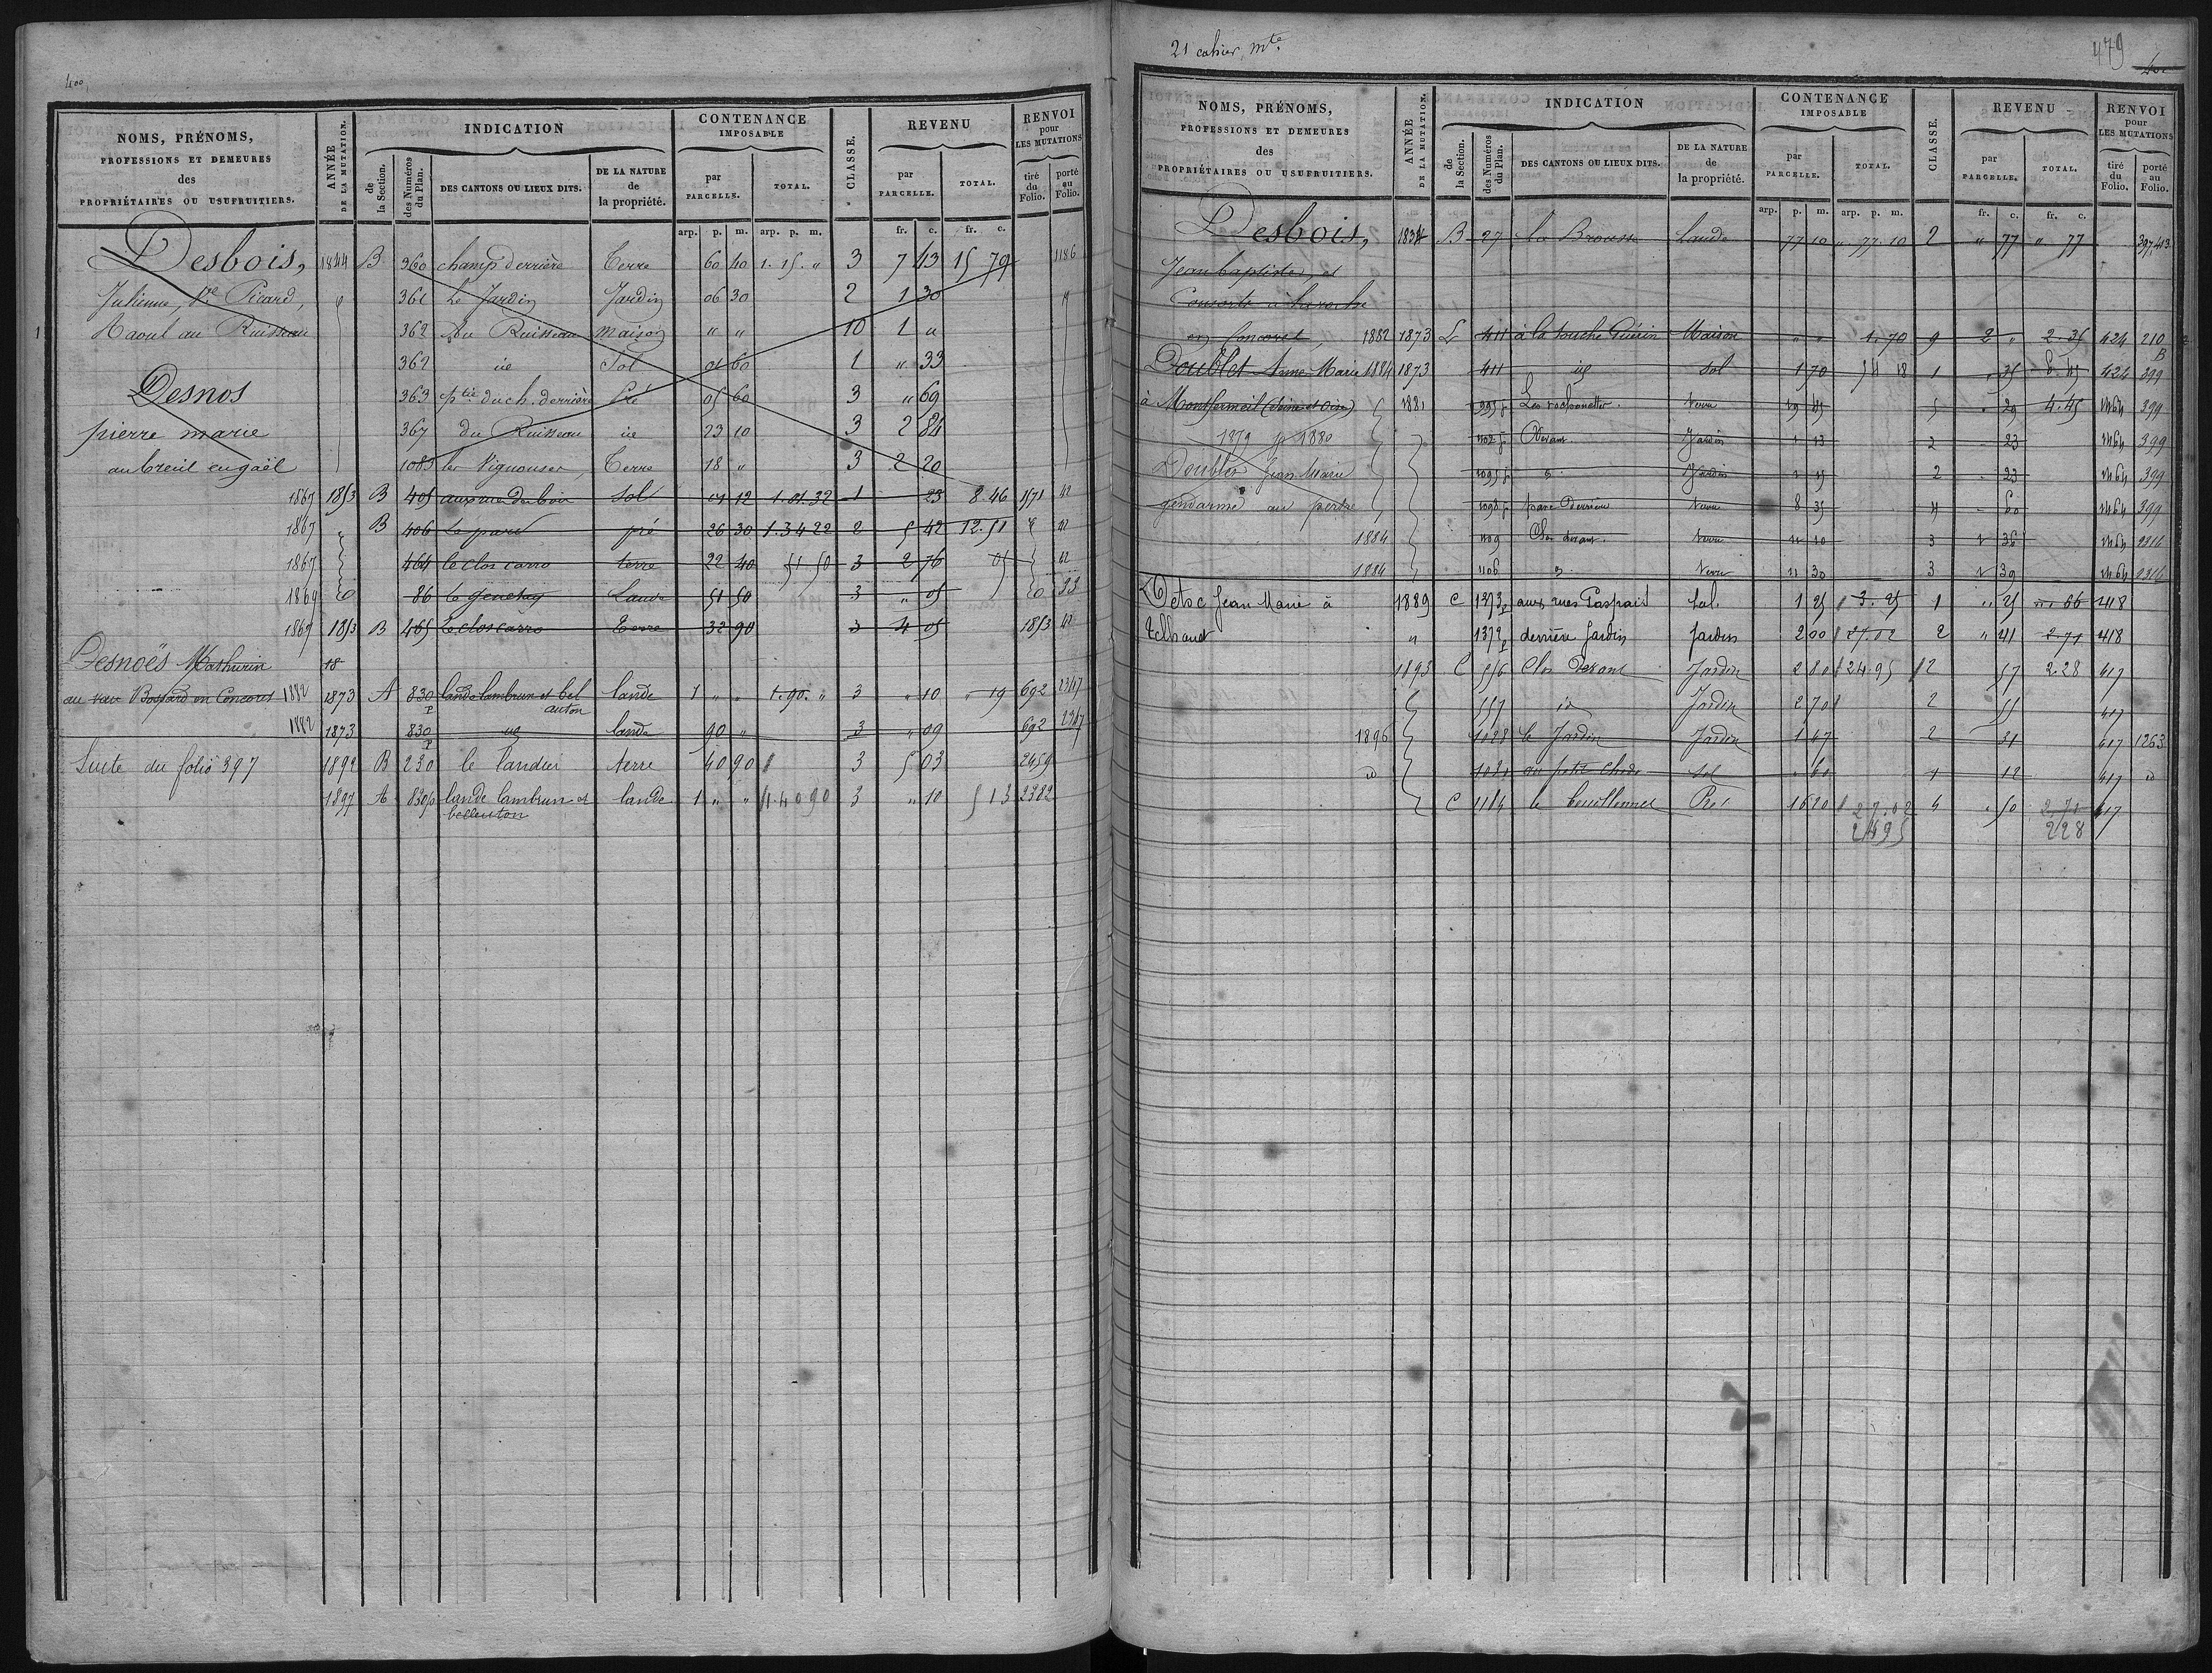 400
NOMS, PRÉNOMS,
PROFESSIONS ET DEMEURES
des
PROPRIÉTAIRES OU USUFRUITIERS.
ANNÉE
DE LA MUTATION.
INDICATION
de
la Section.
des Numéros
du Plan.
DES CANTONS OU LIEUX DITS.
DE LA NATURE
de
la propriété.
CONTENANCE
IMPOSABLE
par
PARCELLE.
TOTAL.
CLASSE.
REVENU
par
PARCELLE.
TOTAL.
RENVOI
pour
LES MUTATIONS
tiré
du
Folio.
porté
au
Folio.
arp. p. m. arp. p. m. fr. c. fr. c.
Desbois, 1844 B 360 champ derrière Terre 60 40 1. 15. " 3 7 43 15 79 1186
Julienne, Ve Picard, 361 Le Jardin Jardin 06 30 2 1 30
Raoul au Ruisseau 362 Du Ruisseau maison " " 10 1 "
362 id Sol 01 60 1 " 33
Desnos 363 ptie du ch. derrière Pré 05 60 3 " 69
pierre marie 367 du Ruisseau id 23 10 3 2 84
au breil en gaël 1083 les Vignouses Terre 18 " 3 2 20
1867 1853 B 405 aux rues du bois Sol 01 12 1. 01. 32 1 23 8. 46 1571 42
1867 " B 406 Le parc pré 26 30 1. 34 22 2 5 42 12. 51 42
1867 464 le clos carro terre 22 40 51 50 3 2 76 05 42
1869 86 le genetay Lande 51 50 3 " 05 33
1867 1853 B 465 Le clos carro Terre 32 90 3 4 05 1853 42
Desnoës Mathurin 18
au Bossard en Concoret 1882 1873 A 830 p lande lambrun et bel lande 1 " " 1. 90. " 3 " 10 " 19 692 2347
auton
1882 1873 830 p id lande 90 " 3 " 09 692 2347
Suite du folio 397 1892 B 230 le landier terre 40 90 3 5 03 2459
1897 A 830 p lande lambrun et lande 1 " " 1. 40 90 3 " 10 5 13 2382
belleuton
21 cahier, mte.
479
NOMS, PRÉNOMS,
PROFESSIONS ET DEMEURES
des
PROPRIÉTAIRES OU USUFRUITIERS.
ANNÉE
DE LA MUTATION.
INDICATION
de
la Section.
des Numéros
du Plan.
DES CANTONS OU LIEUX DITS.
DE LA NATURE
de
la propriété.
CONTENANCE
IMPOSABLE
par
PARCELLE.
TOTAL.
CLASSE.
REVENU
par
PARCELLE.
TOTAL.
RENVOI
pour
LES MUTATIONS
tiré
du
Folio.
porté
au
Folio.
arp. p. m. arp. p. m. fr. c. fr. c.
Desbois, B 27 La Brousse Lande 77 10 " 77. 10 2 " 77 " 77 397, 413
Jean baptiste, et
Consorts à
en Concoret, 1882 1873 L 411 à la Touche Guérin Maison " " 1. 70 9 2 " 2. 35 424 210
B
Doublet Anne Marie 1884 1873 411 id Sol 1 70 54 18 1 " 35 424 399
à Montfermeil (Seine et Oise) 1881 995 p Les 29 45 5 29 4. 45 399
1879 p 1880 Devant Jardin 2 23 399
Doublet Jean Marie 1095 p Jardin 2 23 399
gendarme au 1098 p parc Derrière 8 35 4 60 399
1884 1109 Clos devant 3 36 2316
1884 1106 11 30 3 2316
Detoc Jean Marie à 1889 C 1373 p aux rues Gaspais Sol. 1 25 3. 25 1 " 25 66 418
Telhaut " 1372 p derrière Jardin Jardin 2 00 27. 02 2 " 41 2. 71 418
1893 C 556 Clos Devant Jardin 2 80 24. 95 2 57 2 28 417
557 id Jardin 2 70 2 55 417
1896 1028 le Jardin Jardin 1 47 2 31 417 1263
id 1021 au petit Sol " 60 1 12 417 id
C 1184 le Pré 16 20 27. 02 4 " 50 2. 71 417
24 95 2 28